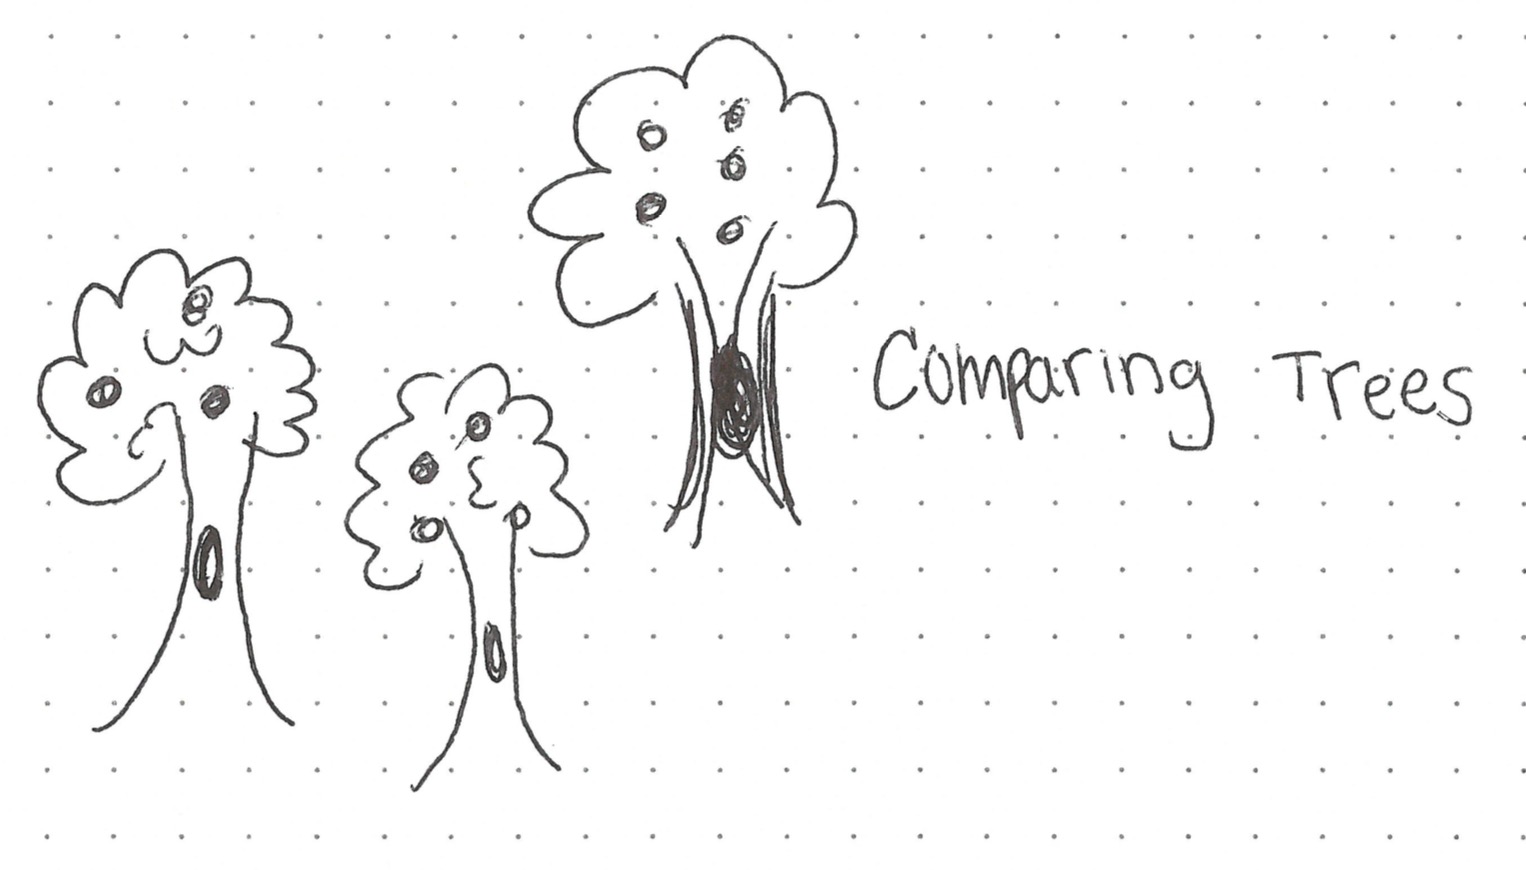 Comparing Trees